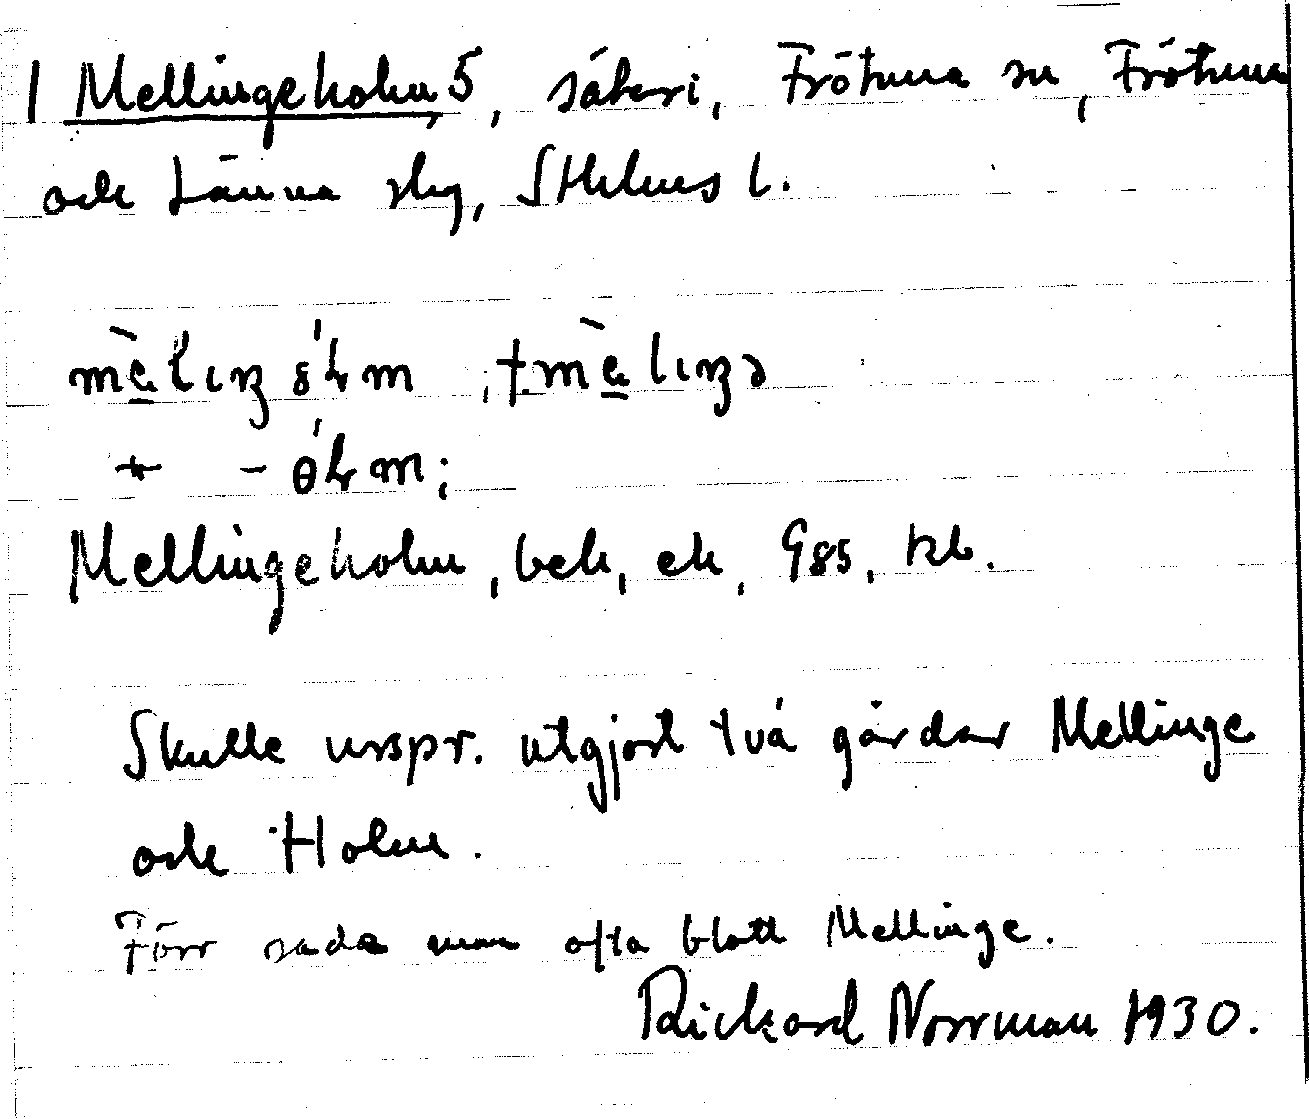 1 Mellingeholm 5, säteri, Frötuna sn, Frötuna
och Länna slg, Sthlms l.
Mellingeholm, bek, ek, 985, kb.
Skulle urspr. utgjort två gårdar Mellinge
och Holm.
Förr sade man ofta blott Mellinge.
Rickard Norrman 1930.